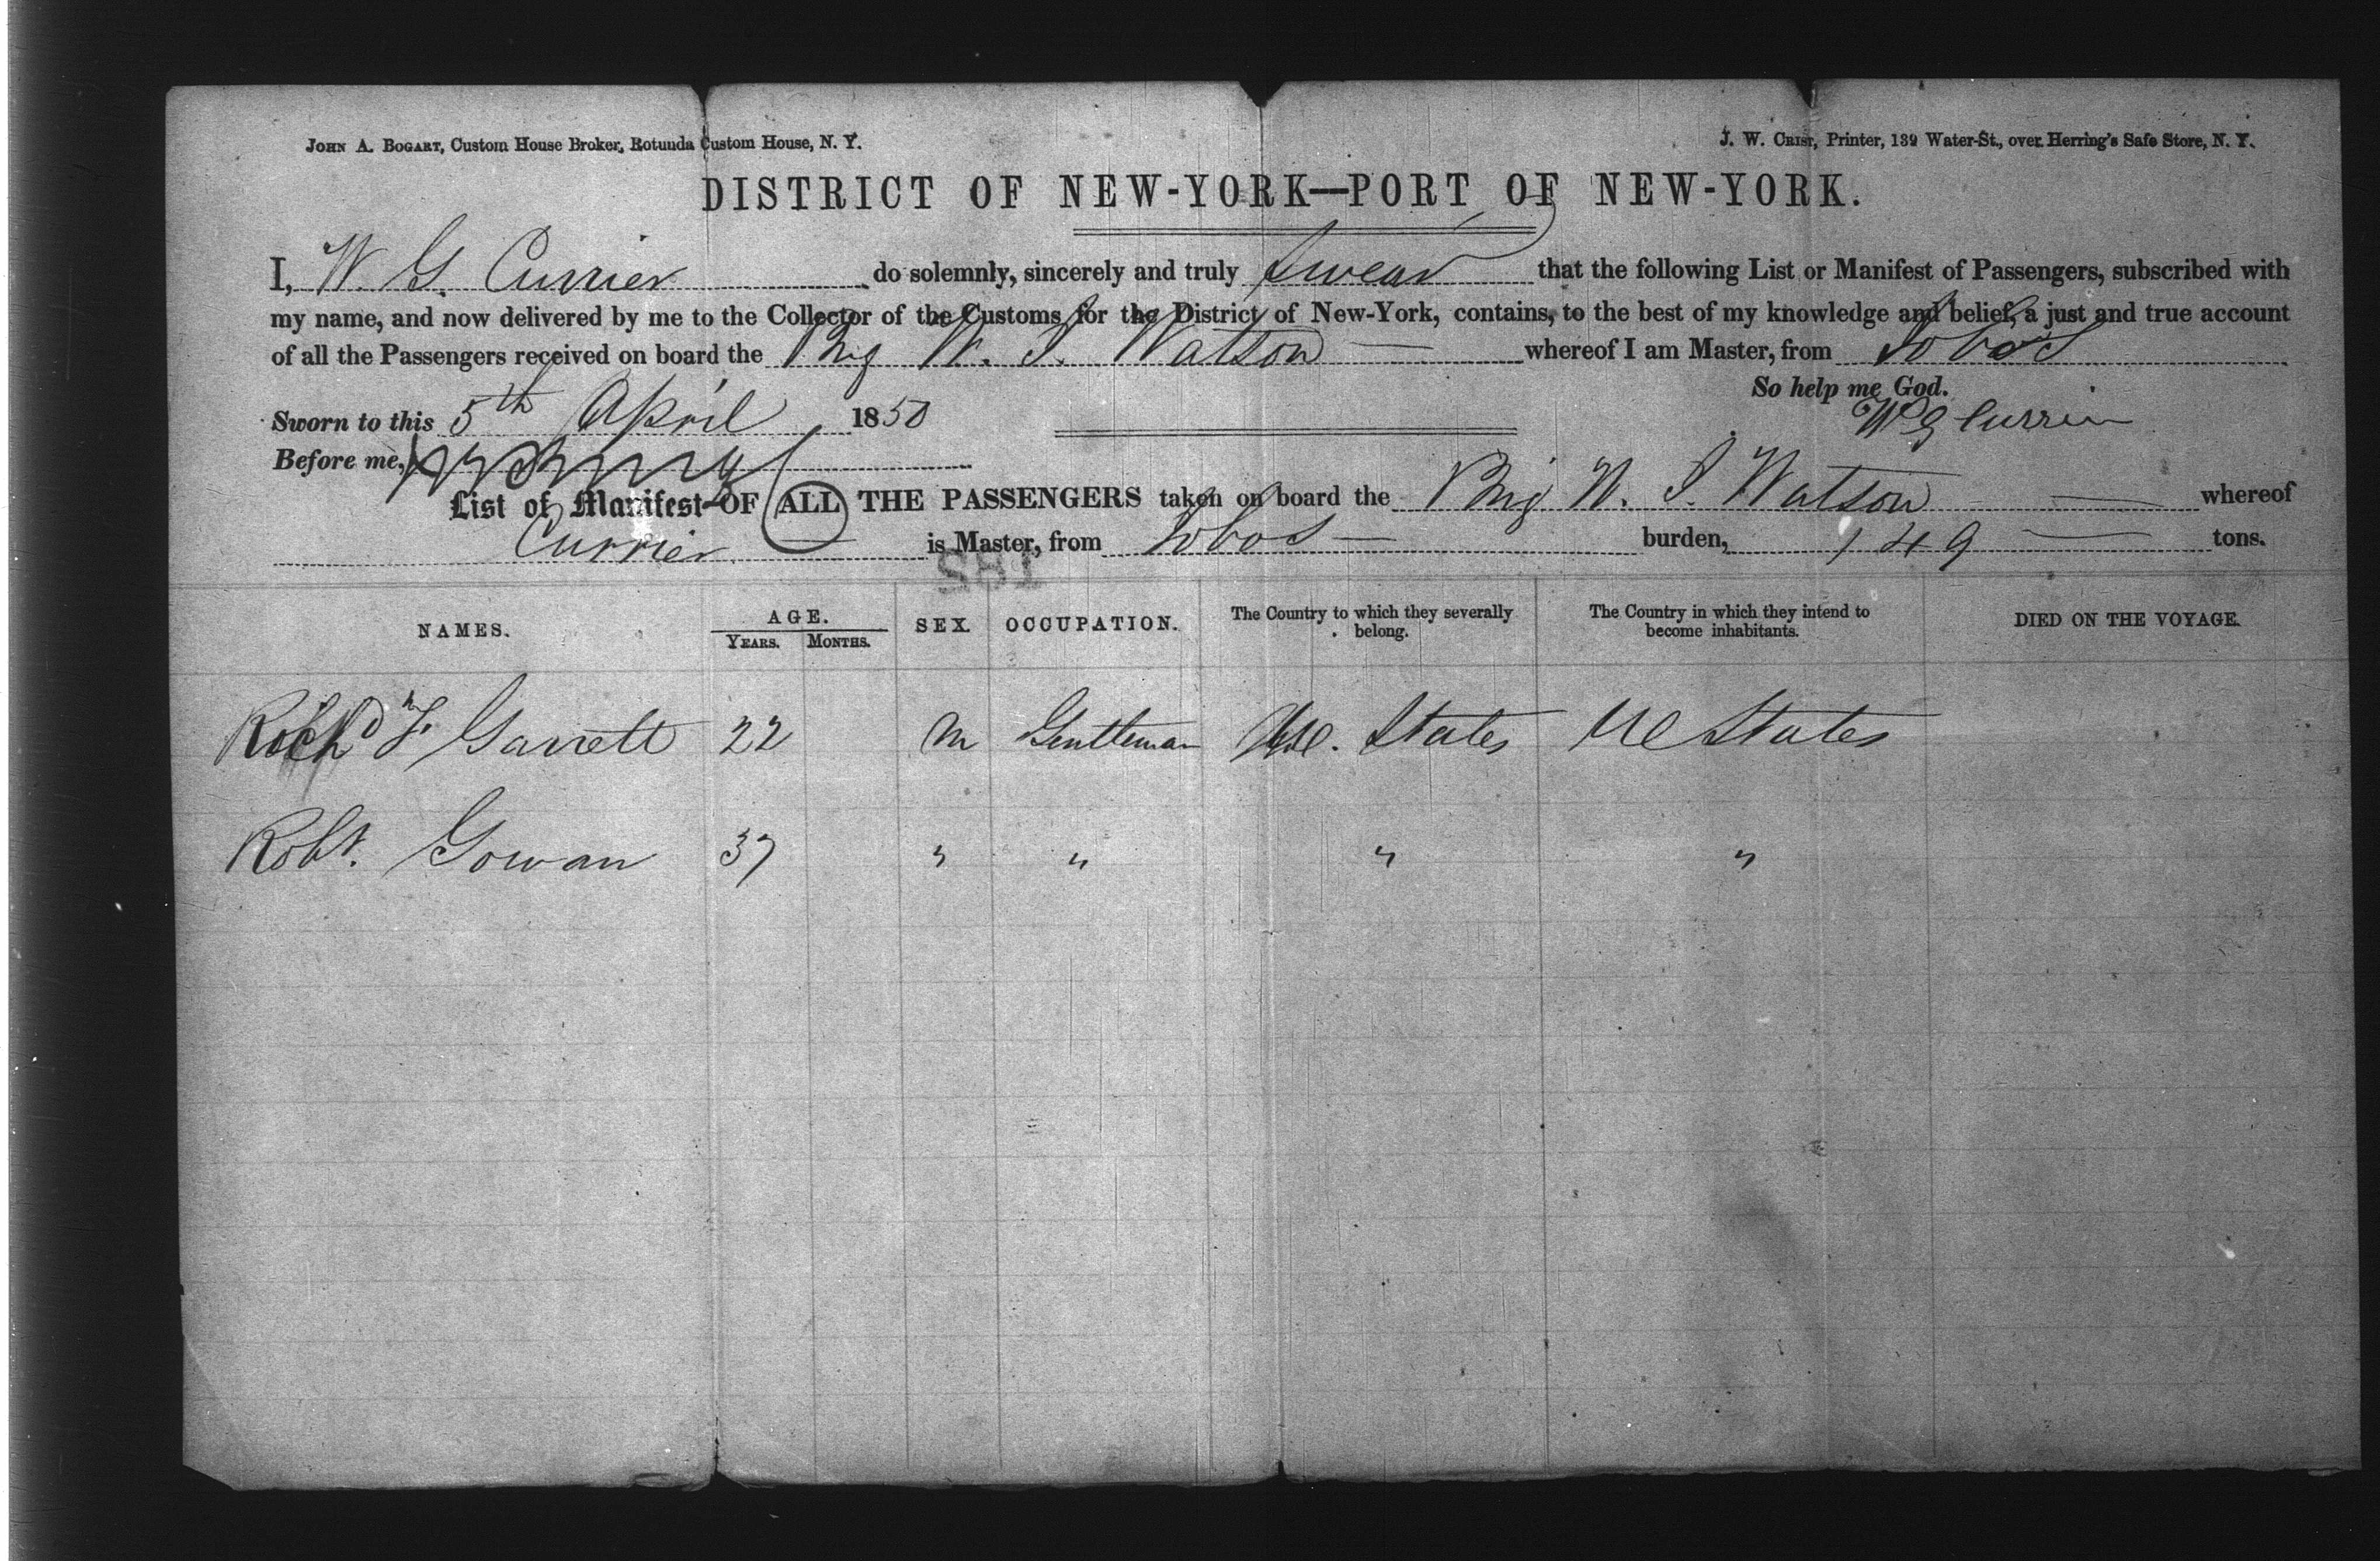 JOHN A. BOGART, Custom House Broker, Rotunda Custom House, N. Y.
J. W. CRIST, Printer, 139 Water-St., over Herring's Safe Store, N. Y.
DISTRICT OF NEW-YORK—PORT OF NEW-YORK.
I, W. G. Currier do solemnly, sincerely and truly swear that the following List or Manifest of Passengers, subscribed with
my name, and now delivered by me to the Collector of the Customs for the District of New-York, contains, to the best of my knowledge and belief, a just and true account
of all the Passengers received on board the Brig W. I. Watson — whereof I am Master, from Lobos
So help me God.
Sworn to this 5th April 1850
W G Currier
Before me,
List or Manifest OF ALL THE PASSENGERS taken on board the Brig W. I. Watson — whereof
Currier — is Master, from Lobos — burden, 149 — tons.
182
NAMES. AGE. SEX. OCCUPATION. The Country to which they severally belong. The Country in which they intend to become inhabitants. DIED ON THE VOYAGE.
YEARS. MONTHS.
Richd F. Garrett 22 M Gentleman U. States U States
Robt. Gowan 37 " " " "